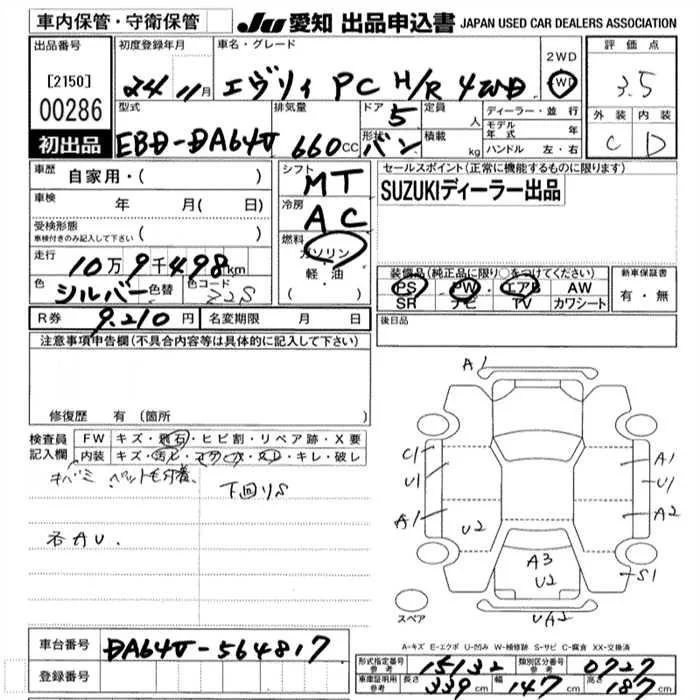 車内保管・守衛保管
Ju 愛知 出品申込書 JAPAN USED CAR DEALERS ASSOCIATION
出品番号
[2150]
00286
初出品
初度登録年月
24 11月
車名・グレード
エヴリィ PC H/R 4WD
2WD
4WD
評価点
3.5
外装 内装
C D
型式
EBD-DA64V
排気量
660cc
ドア
5
形状
バン
定員
人
積載
kg
ディーラー・並行
モデル年式 年
ハンドル 左・右
車歴
自家用・( )
車検 年 月( 日)
受検形態
車検付きのみ記入して下さい ( )
走行
10万9千498km
色
シルバー
色替
色コード
Z2S
R券 9,210円 名変期限 月 日
シフト
MT
冷房
AC
燃料
ガソリン
軽・油
・( )
セールスポイント(正常に機能するものに限ります)
SUZUKIディーラー出品
装備品(純正品に限り○をつけてください)
PS PW エアB AW
SR ナビ TV カワシート
新車保証書
有・無
後日品
注意事項申告欄(不具合内容等は具体的に記入して下さい)
修復歴 有(箇所 )
検査員記入欄
FW キズ・飛石・ヒビ割・リペア跡・X要
内装 キズ・汚レ・コゲ・穴・スレ・キレ・破レ
ペット毛付着
下回りS
否AU.
A1
C1
U1
A1
U2
A3
U2
A1
U1
A2
S1
UA2
スペア
A-キズ E-エクボ U-凹み W-補修跡 S-サビ C-腐食 XX-交換済
車台番号 DA64V-564817
登録番号
形式指定番号 参考 15132 類別区分番号 参考 0727
車庫証明用 参考 長さ 339cm 幅 147cm 高さ 187cm